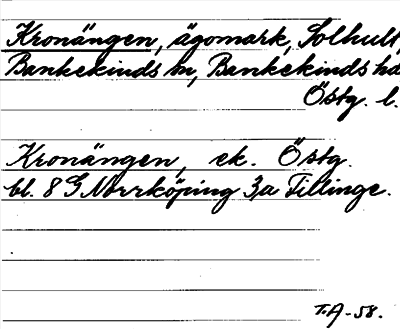 Kronängen, ägomark, Solhult,
Bankekinds sn, Bankekinds hd
Östg. l.
Kronängen, ek. Östg.
bl. 8 G Norrköping 3,a Fillinge.
T.A-58.